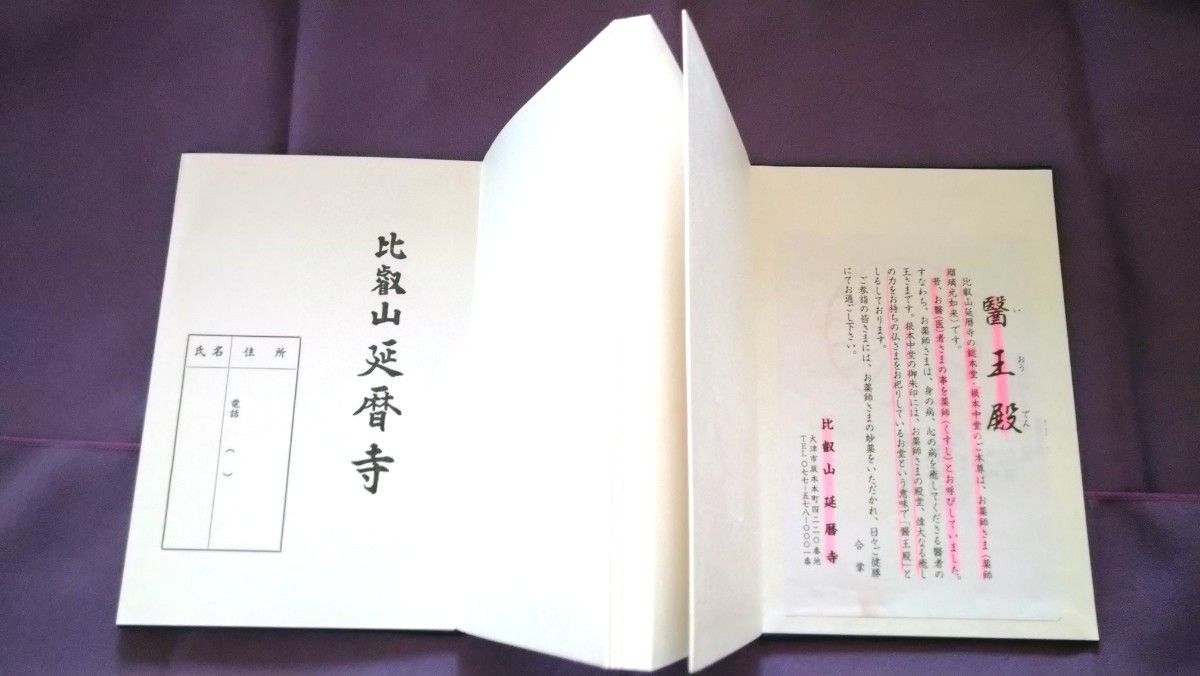 醫王殿
いおうでん
比叡山延暦寺の総本堂・根本中堂のご本尊は、お薬師さま(薬師
瑠璃光如来)です。
昔、お醫(医)者さまの事を薬師(くすし)とお呼びしていました。
すなわち、お薬師さまは、身の病、心の病を癒してくださる醫者の
王さまです。根本中堂の御朱印には、お薬師さまの殿堂、偉大なる癒し
の力をお持ちの仏さまをお祀りしているお堂という意味で「醫王殿」と
しるしております。
ご参詣の皆さまには、お薬師さまの妙薬をいただかれ、日々ご健勝
にてお過ごし下さい。
合掌
比叡山延暦寺
大津市坂本本町四二二〇番地
TEL〇七七-五七八-〇〇〇一番
比叡山延暦寺
住所
氏名
電話
( )